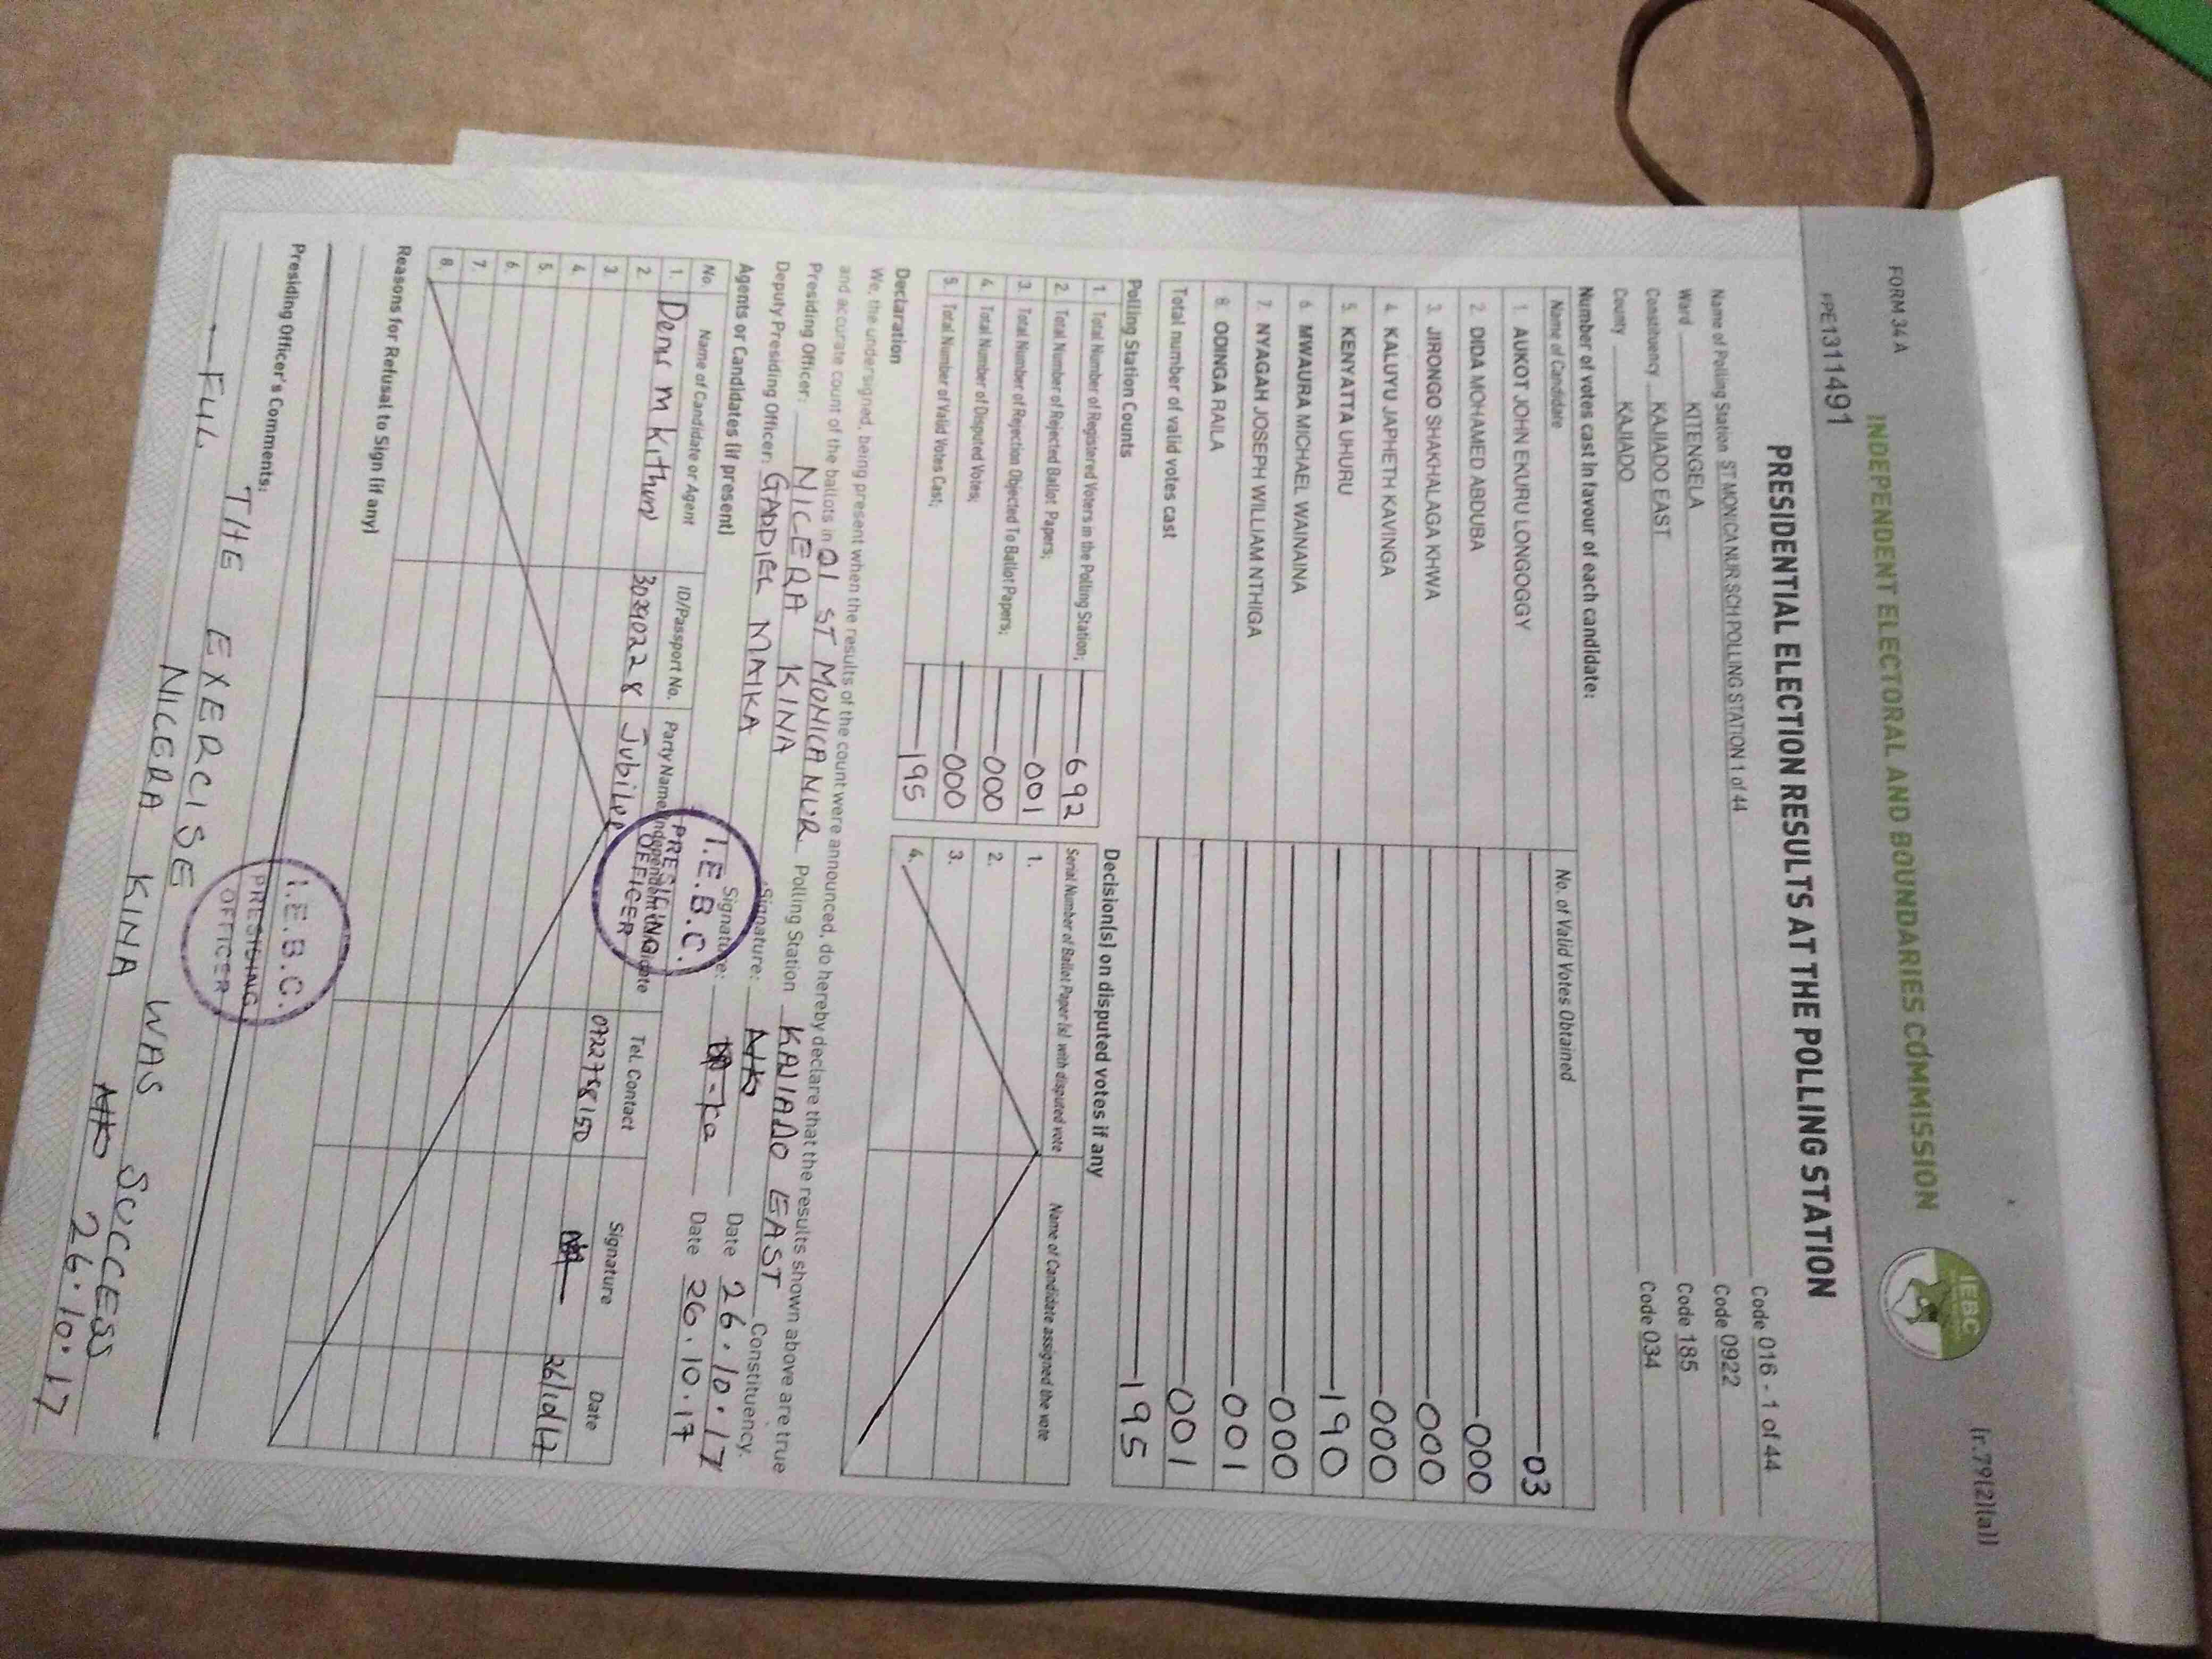 FORM 34 A
(r.79(2)(a))
INDEPENDENT ELECTORAL AND BOUNDARIES COMMISSION
IEBC
PPE1311491
PRESIDENTIAL ELECTION RESULTS AT THE POLLING STATION
Name of Polling Station ST MONICA NUR SCH POLLING STATION 1 of 44 Code 016 - 1 of 44
Ward KITENGELA Code 0922
Constituency KAJIADO EAST Code 185
County KAJIADO Code 034
Number of votes cast in favour of each candidate:
Name of Candidate No. of Valid Votes Obtained
1. AUKOT JOHN EKURU LONGOGGY 03
2. DIDA MOHAMED ABDUBA 000
3. JIRONGO SHAKHALAGA KHWA 000
4. KALUYU JAPHETH KAVINGA 000
5. KENYATTA UHURU 190
6. MWAURA MICHAEL WAINAINA 000
7. NYAGAH JOSEPH WILLIAM NTHIGA 001
8. ODINGA RAILA 001
Total number of valid votes cast 195
Polling Station Counts
1. Total Number of Registered Voters in the Polling Station; 692
2. Total Number of Rejected Ballot Papers; 001
3. Total Number of Rejection Objected To Ballot Papers; 000
4. Total Number of Disputed Votes; 000
5. Total Number of Valid Votes Cast; 195
Decision(s) on disputed votes if any
Serial Number of Ballot Paper (s) with disputed vote Name of Candidate assigned the vote
1.
2.
3.
4.
Declaration
We, the undersigned, being present when the results of the count were announced, do hereby declare that the results shown above are true
and accurate count of the ballots in 01 ST MONICA NUR Polling Station KAJIADO EAST Constituency.
Presiding Officer: NICERA KINA Signature: Date 26.10.17
Deputy Presiding Officer: GADDIEL MAIKA Signature: Date 26.10.17
Agents or Candidates (if present)
No. Name of Candidate or Agent ID/Passport No. Party Name/Independent Candidate Tel. Contact Signature Date
1. Denis m Kithun 30290228 Jubilee 0722758150 26/10/17
2.
3.
4.
5.
6.
7.
8.
I.E.B.C.
PRESIDING
OFFICER
Reasons for Refusal to Sign (if any)
Presiding Officer's Comments:
THE EXERCISE WAS SUCCESS
FULL NICERA KINA 26.10.17
I.E.B.C.
PRESIDING
OFFICER